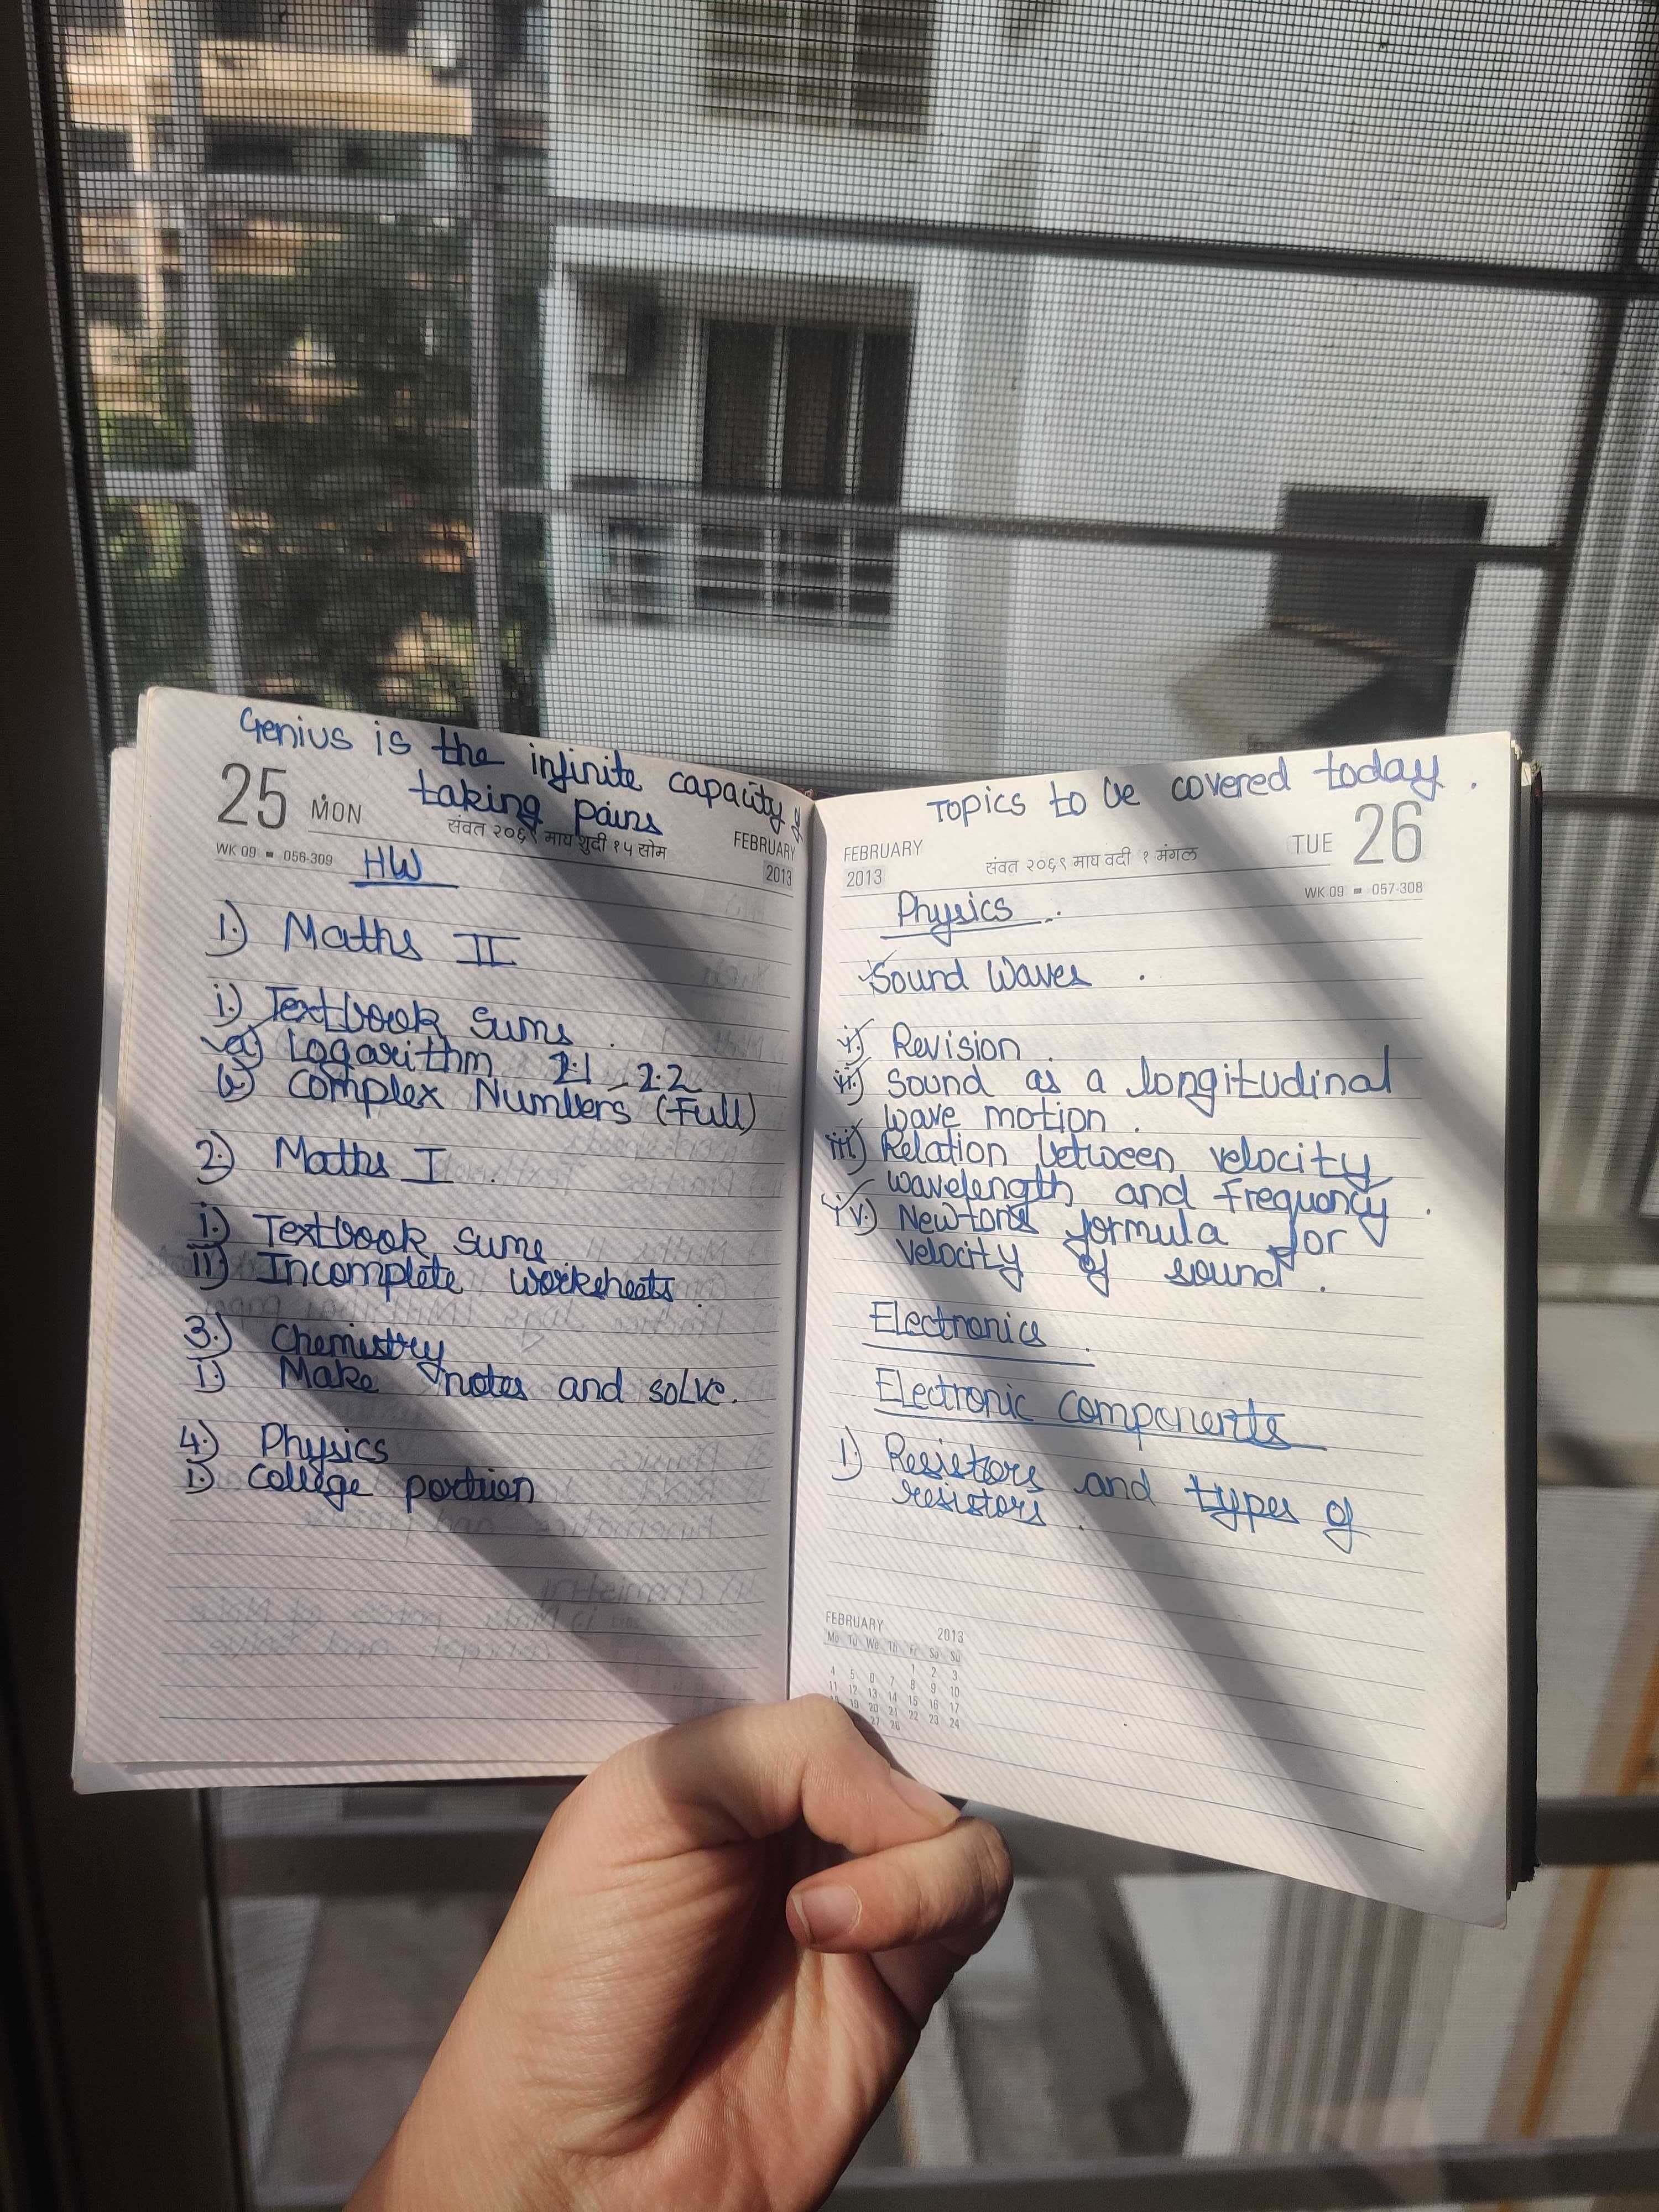 Genius is the infinite capacity of
taking pains
25 MON
संवत २०६९ माघ शुदी १५ सोम
FEBRUARY
WK 09 056-309
2013
HW
1.) Maths II
i.) Textbook sums.
a) Logarithm 2.1 - 2.2
b) Complex Numbers (Full)
2.) Maths I.
i.) Textbook sums
ii) Incomplete worksheets.
3.) Chemistry
i.) Make notes and solve.
4.) Physics
i) College portion
Topics to be covered today.
FEBRUARY
TUE 26
2013
संवत २०६९ माघ वदी १ मंगल
WK 09 057-308
Physics.
Sound Waves.
i.) Revision.
ii.) Sound as a longitudinal
wave motion.
iii) Relation between velocity
wavelength and frequency.
iv.) Newtons formula for
velocity of sound.
Electronics.
Electronic Components
1.) Resistors and types of
resistors.
FEBRUARY 2013
Mo Tu We Th Fr Sa Su
1 2 3
4 5 6 7 8 9 10
11 12 13 14 15 16 17
19 20 21 22 23 24
27 28